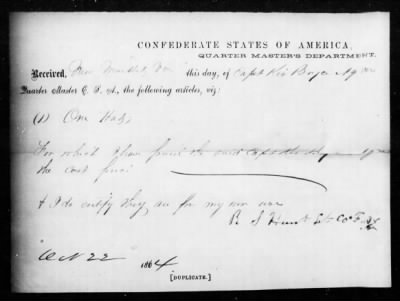 CONFEDERATE STATES OF AMERICA,
QUARTER MASTER'S DEPARTMENT.
Received, this day, of Capt
Quarter Master C. S. A., the following articles, viz:
(1) One Hat
For which I have paid the said Capt
the cost price
& I do certify they are for my own use
R. S. Hunt Lt Co F
Oct 22 1864
[DUPLICATE.]